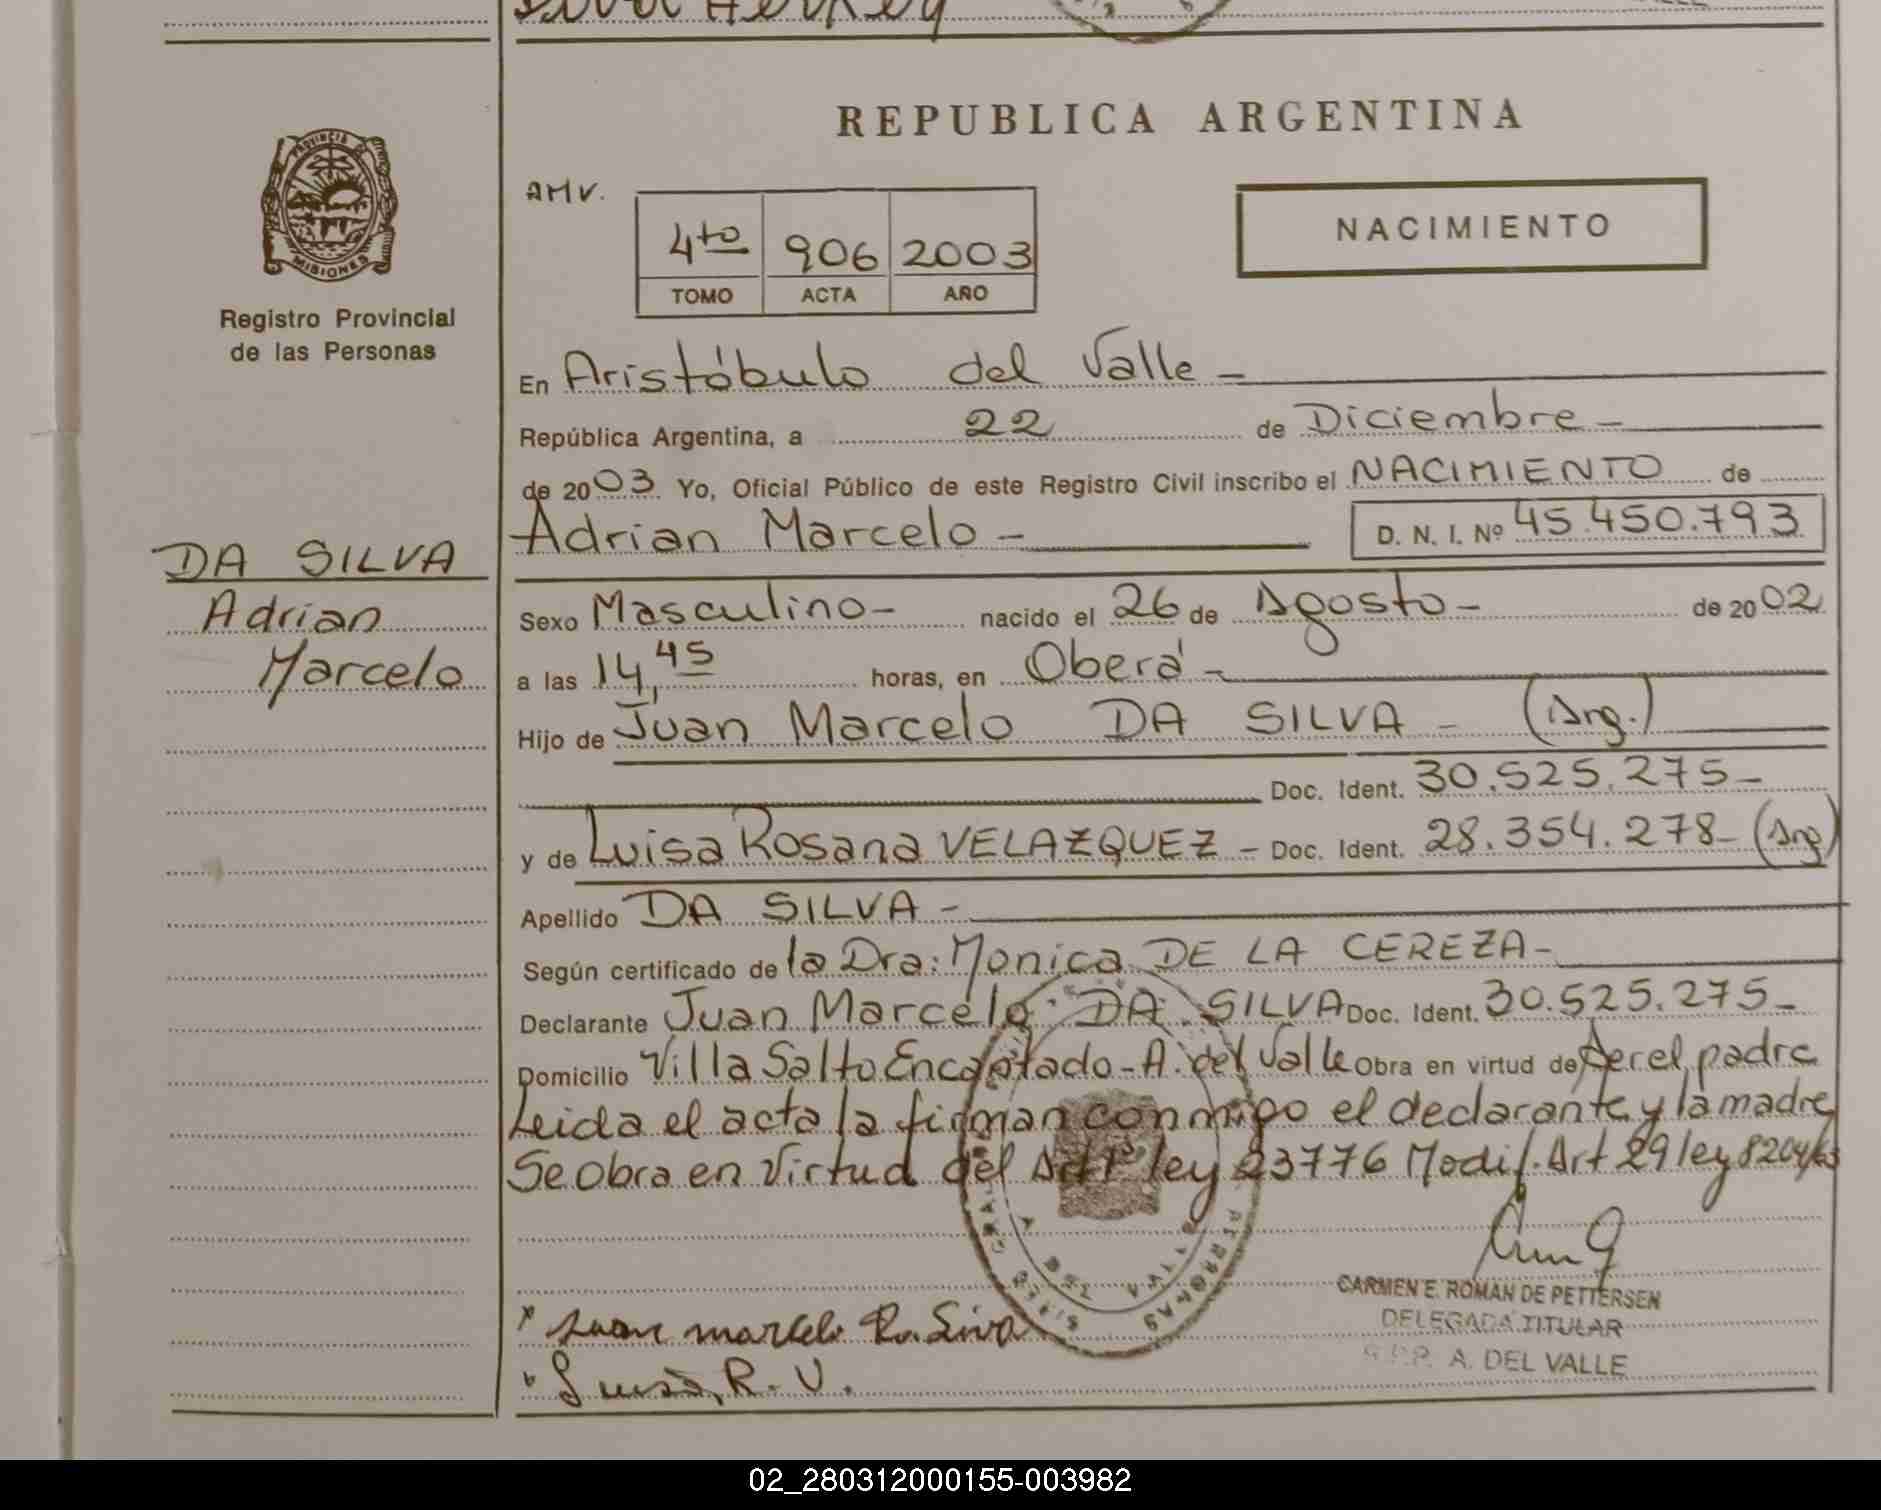 REPUBLICA ARGENTINA
PROVINCIA DE
MISIONES
Registro Provincial
de las Personas
AMV.
4to 906 2003
TOMO ACTA AÑO
NACIMIENTO
En Aristóbulo del Valle -
República Argentina, a 22 de Diciembre -
de 2003 Yo, Oficial Público de este Registro Civil inscribo el NACIMIENTO de
Adrian Marcelo - D. N. I. Nº 45.450.793
DA SILVA
Adrian
Marcelo
Sexo Masculino - nacido el 26 de Agosto - de 2002
a las 14,45 horas, en Oberá -
Hijo de Juan Marcelo DA SILVA - (Arg.)
Doc. Ident. 30.525.275 -
y de Luisa Rosana VELAZQUEZ - Doc. Ident. 28.354.278 - (Arg)
Apellido DA SILVA -
Según certificado de la Dra: Monica DE LA CEREZA -
Declarante Juan Marcelo DA SILVA Doc. Ident. 30.525.275 -
Domicilio Villa Salto Encantado - A. del Valle Obra en virtud de Ser el padre
Leida el acta la firman conmigo el declarante y la madre
Se Obra en Virtud del Art 1º ley 23776 Modif. Art 29 ley 8204/63
CARMEN E. ROMAN DE PETTERSEN
DELEGADA TITULAR
A. DEL VALLE
Juan marcelo Da Silva
Luisa R. V.
02_280312000155-003982